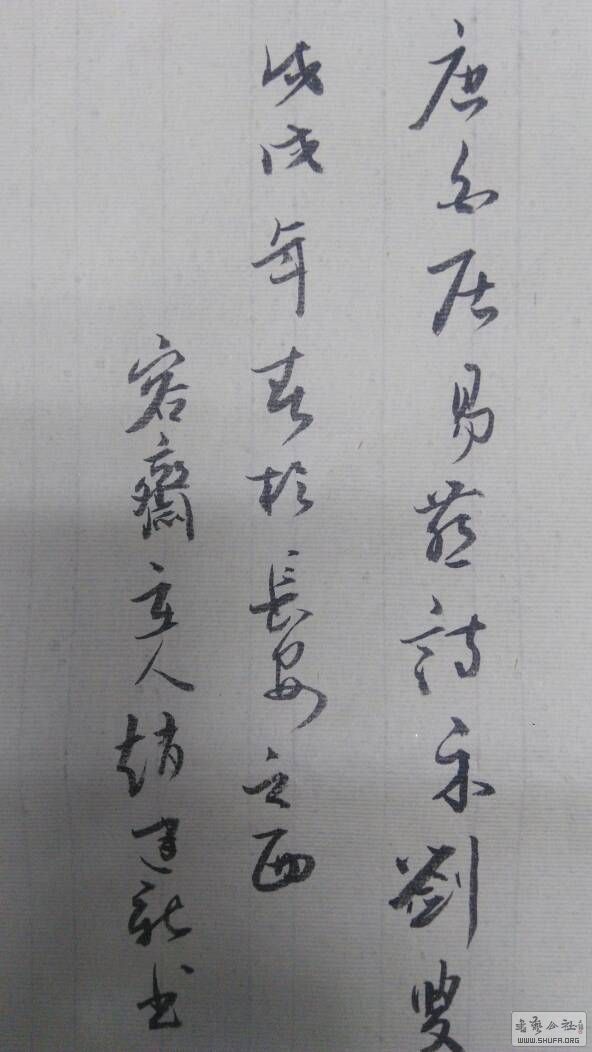 唐白居易燕詩示劉叟
戊戌年春於長安之西
容齋主人趙建新書
書藝公社
WWW.SHUFA.ORG